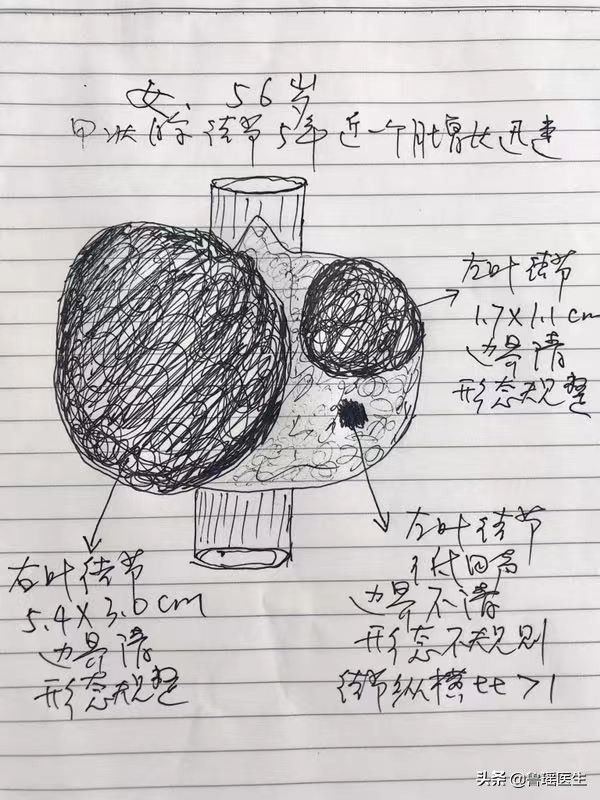 女、56岁
甲状腺结节5年近一个月增长迅速
左叶结节
1.7×1.1cm
边界清
形态规整
左叶结节
低回声
边界不清
形态不规则
结节纵横比>1
右叶结节
5.4×3.6cm
边界清
形态规整
头条@鲁瑶医生